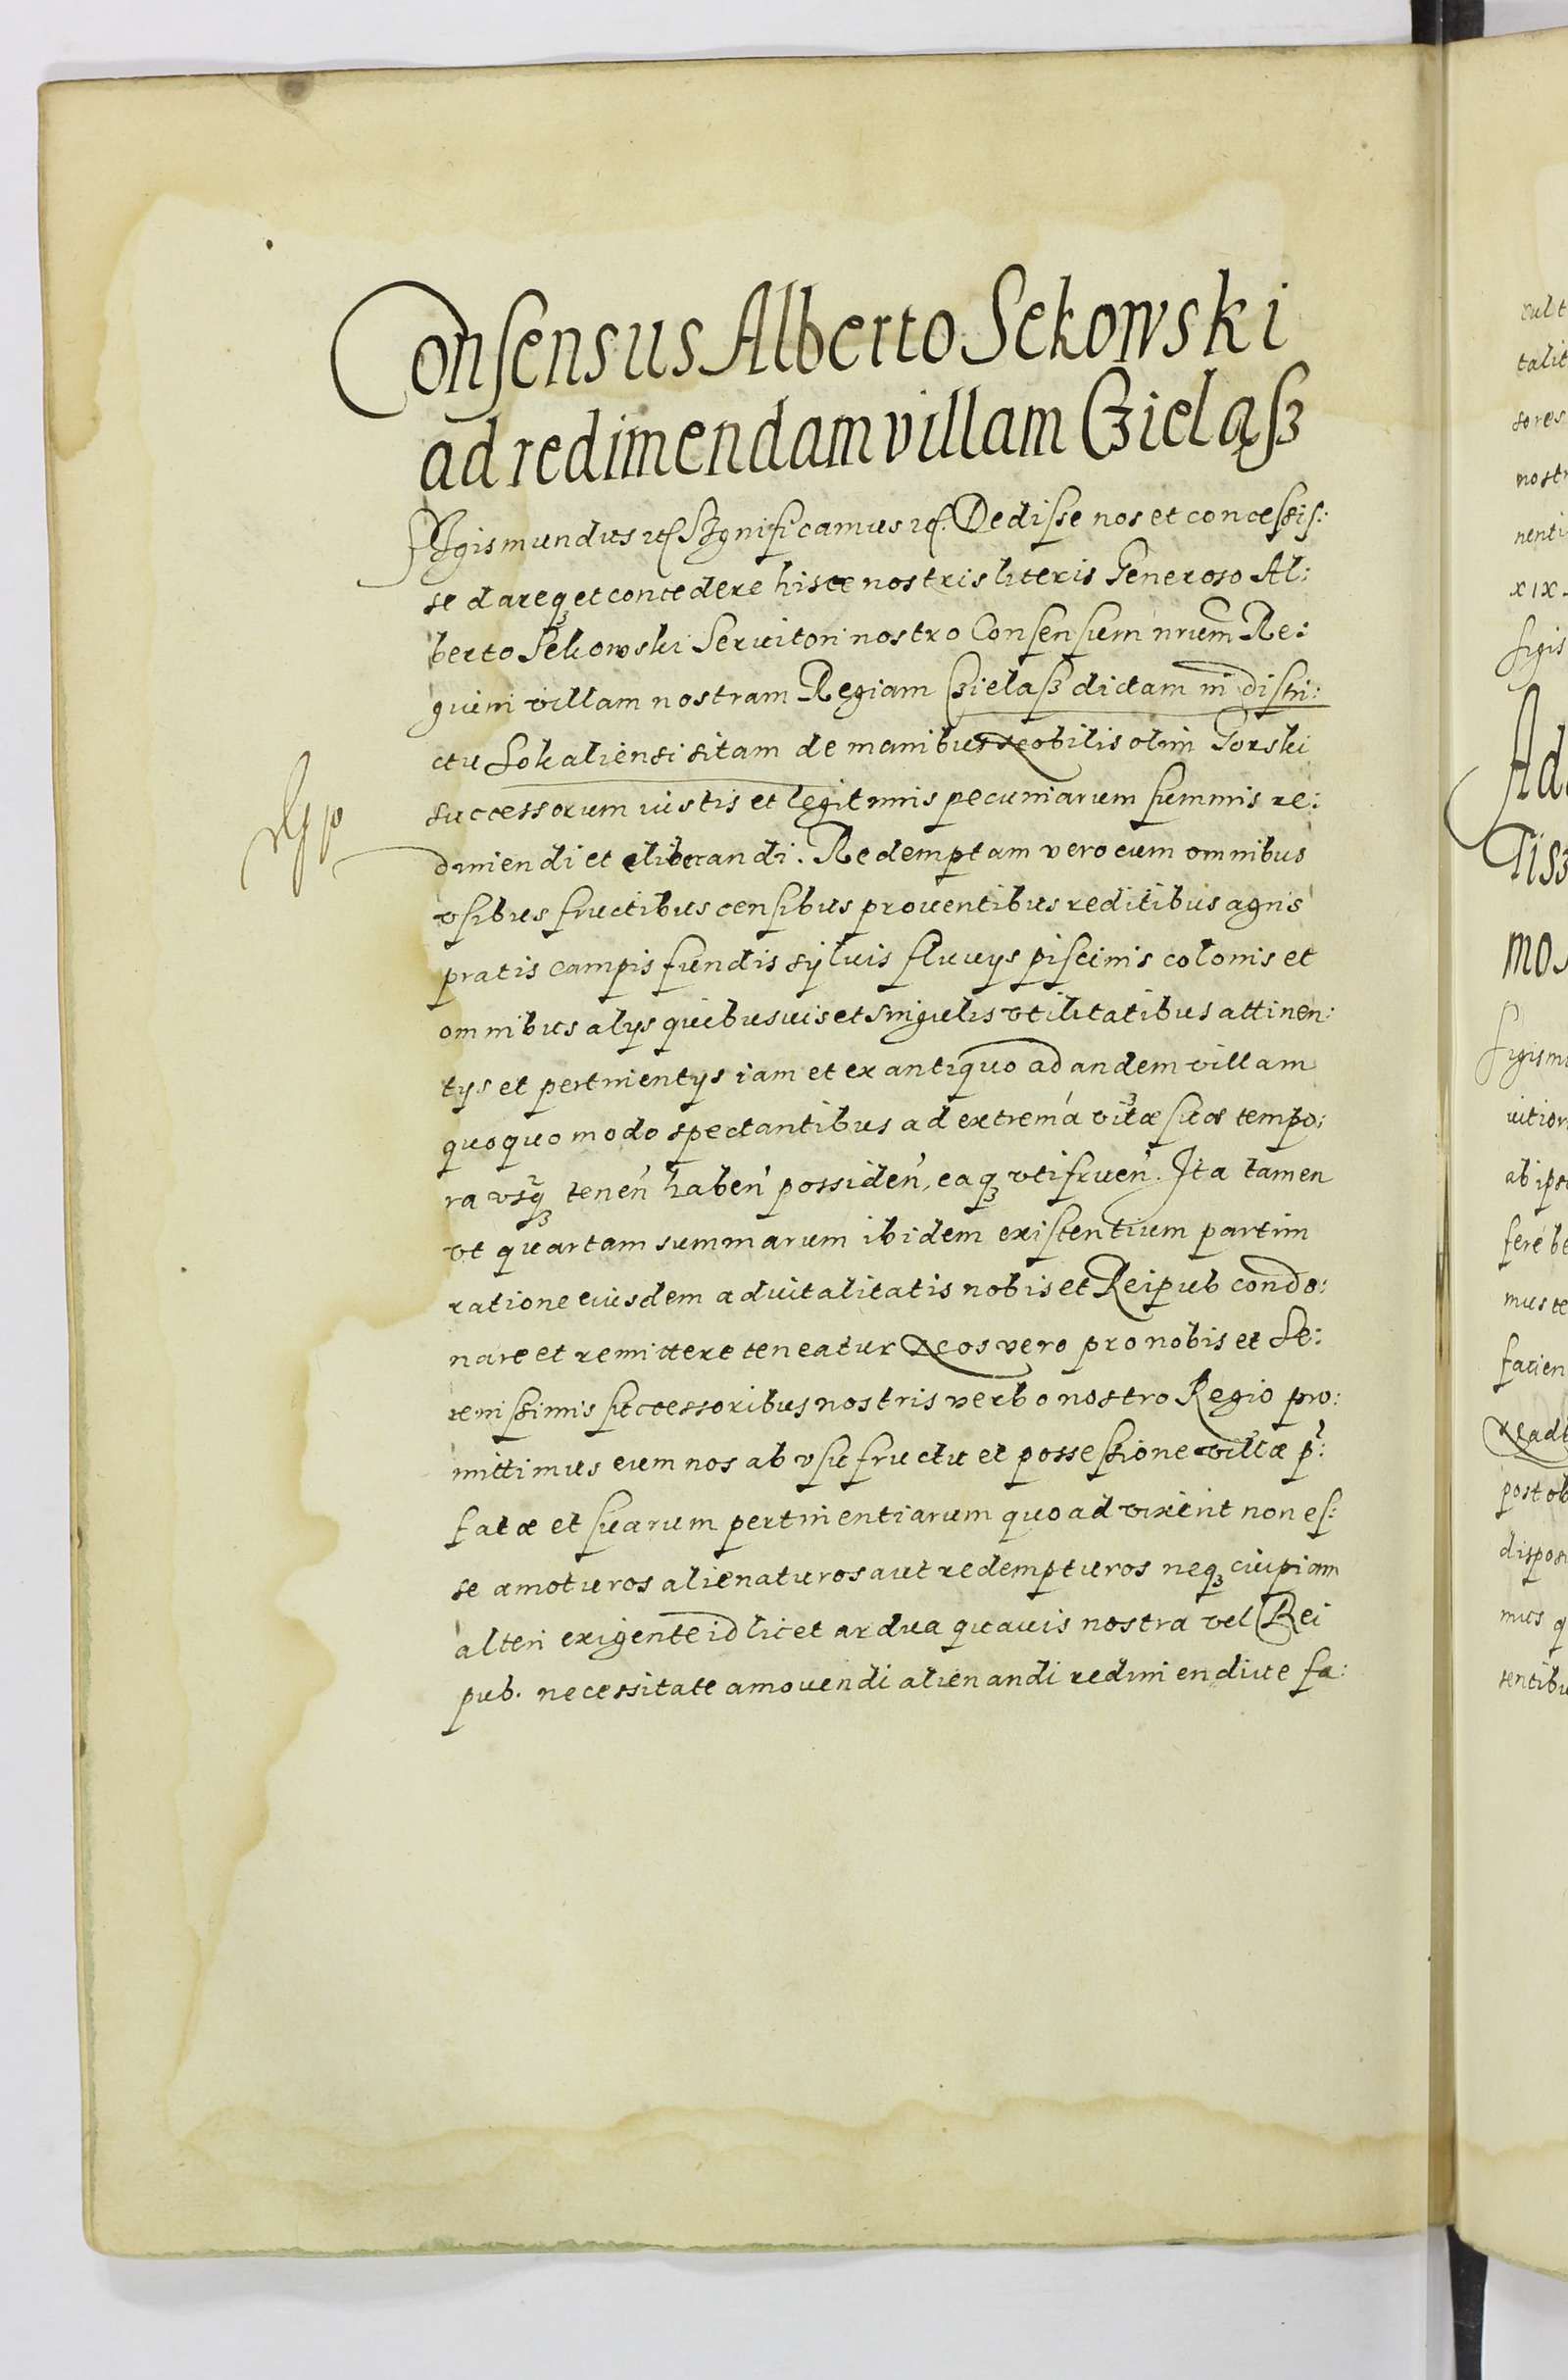 Consensus Alberto Sekowski
ad redimendam villam Czieląsz
Sigismundus etc. Significamus etc. Dedisse nos et concessis:
se dareq3 et concedere hisce nostris literis Generoso Al:
berto Sekowski Seruitori nostro Consensum nrum Re:
guini villam nostram Regiam Czielasz dictam in distri:
ctu Sokaliensi sitam de manibus Nobilis olim Gorski
successorum iustis et legitimis pecuniarum summis re:
dimiendi et eliberandi. Redemptam vero cum omnibus
vsibus fructibus censibus prouentibus reditibus agris
pratis campis fundis syluis fluuys piscinis colonis et
omnibus alys quibusuis et singulis vtilitatibus attinen:
tys et pertinentys iam et ex antiquo ad andem villam
quoquo modo spectantibus ad extrema vitæ suæ tempo:
ra vsq3 tenen haben possiden, eaq3 vti fruen. Ita tamen
vt quartam summarum ibidem existentium partim
ratione eiusdem aduitalitatis nobis et Reipub condo:
nare et remittere teneatur Nos vero pro nobis et Se:
renissimis successoribus nostris verbo nostro Regio pro:
mittimus eum nos ab vsufructu et possessione villæ p:
fatæ et suarum pertinentiarum quoad vixerit non es:
se amoturos alienaturos aut redempturos neq3 cuipiam
alteri exigente id licet ardua quauis nostra vel Rei
pub. necessitate amouendi alienandi redimendiue fa: